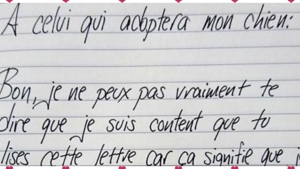 A celui qui adoptera mon chien:
Bon, je ne peux pas vraiment te
dire que je suis content que tu
lises cette lettre car ça signifie que